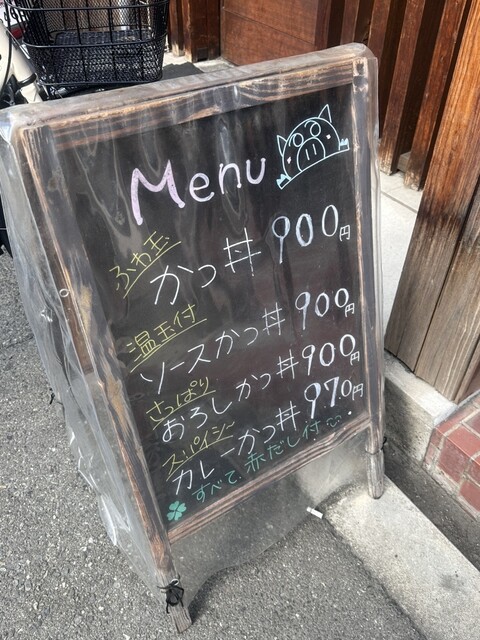 Menu
ふわ玉
かつ丼 900円
温玉付
ソースかつ丼 900円
さっぱり
おろしかつ丼 900円
スパイシー
カレーかつ丼 970円
すべて、赤だし付